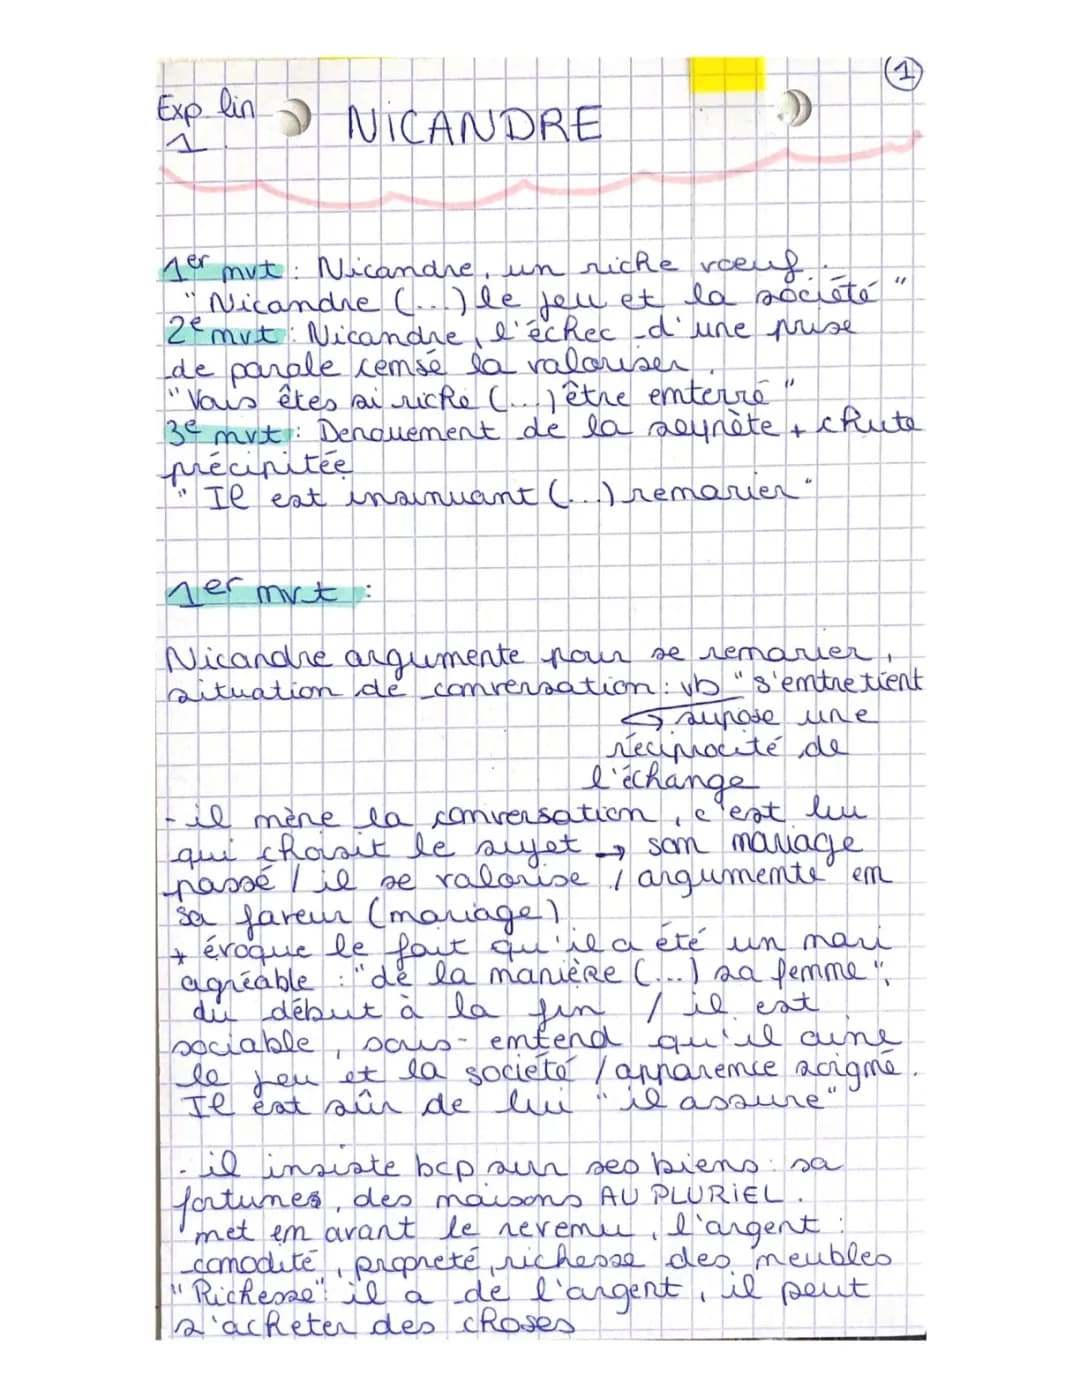 ①
Exp. lin
1
NiCANDRE
1er mvt : Nicandre, un riche voeuf.
"Nicandre (...) le jeu et la société"
2e mvt : Nicandre, l'échec d'une prise
de parole censé la valoriser.
"Vous êtes si riche (...) être enterré"
3e mvt : Denouement de la seynète + chute
précipitée
"Il est insinuant (...) remarier"
1er mvt :
Nicandre argumente pour se remarier,
situation de conversation : vb "s'entretient
↳ supose une
réciprocité de
l'échange
- il mène la conversation, c'est lui
qui choisit le sujet → son mariage
passé / il se valorise / argumente en
sa faveur (mariage)
+ évoque le fait qu'il a été un mari
agréable : "de la manière (...) sa femme",
du début à la fin / il est
sociable, sous-entend qu'il aime
le jeu et la société / apparence soigné.
Il est sûr de lui "il assure"
- il insiste bcp sur ses biens : sa
fortunes, des maisons AU PLURiEL.
met en avant le revenu, l'argent :
comodité, propreté, richesse des meubles
"Richesse" : il a de l'argent, il peut
s'acheter des choses